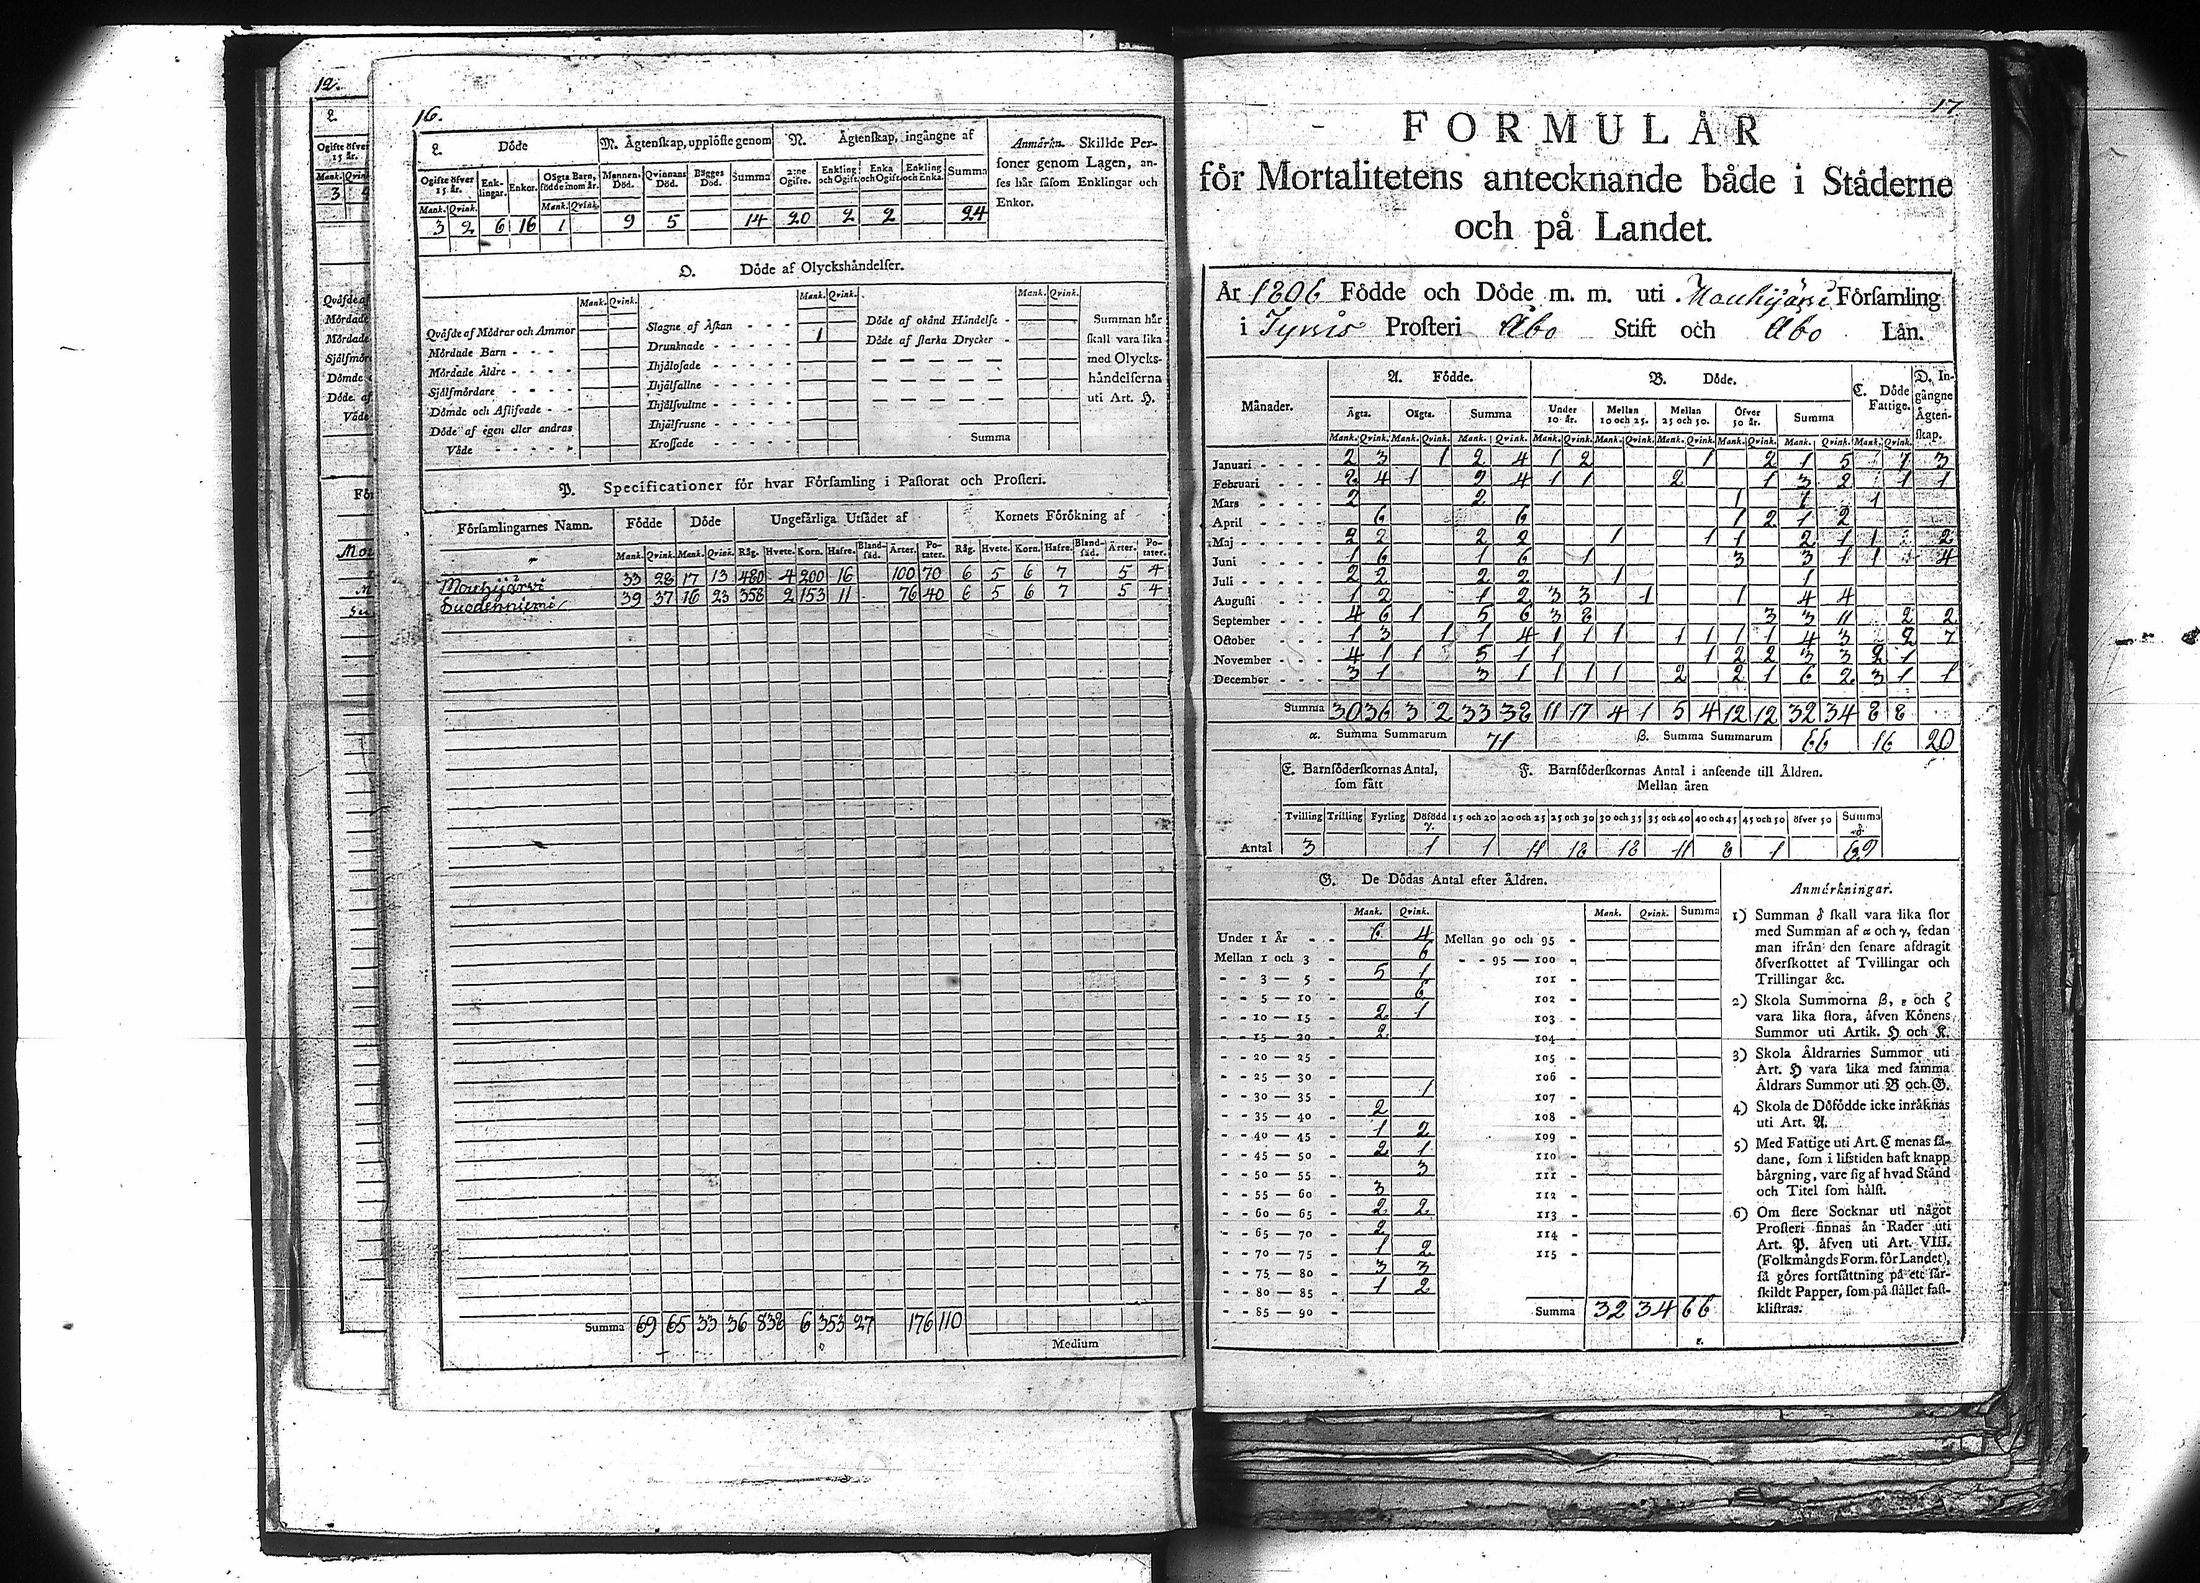 12.
16.
L. Döde
M. Ägtenskap, upplöste genom
N. Ägtenskap, ingångne af
Anmärkn. Skillde Personer genom Lagen, anses här såsom Enklingar och Enkor.
Ogifte öfver 15 år. Enklingar. Enkor. Oägta Barn, födde inom år. Mannens Död. Qvinnans Död. Bägges Död. Summa 2:ne Ogifte. Enkling och Ogift. Enka och Ogift. Enkling och Enka. Summa
Mank. Qvink. Mank. Qvink.
3 2 6 16 1 9 5 14 20 2 2 24
O. Döde af Olyckshändelser.
Mank. Qvink. Mank. Qvink. Mank. Qvink.
Qväfde af Mödrar och Ammor
Mördade Barn - - -
Mördade Äldre - - -
Självmördare - - -
Dömde och Aflifvade - -
Döde af egen eller andras
Våde - - - - -
Slagne af Åskan - - -
Drunknade - - - - 1
Ihjälosade - - - -
Ihjälfallne - - - -
Ihjälsvultne - - - -
Ihjälfrusne - - - -
Krossade - - - -
Döde af okänd Händelse -
Döde af starka Drycker -
Summa
Summan här
skall vara lika
med Olycks-
händelserna
uti Art. H.
P. Specificationer för hvar Församling i Pastorat och Prosteri.
Församlingarnes Namn. Födde Döde Ungefärliga Utsädet af Kornets Förökning af
Mank. Qvink. Mank. Qvink. Råg. Hvete. Korn. Hafre. Blandsäd. Ärter. Potater. Råg. Hvete. Korn. Hafre. Blandsäd. Ärter. Potater.
Mouhijärvi 33 28 17 13 480 4 200 16 100 70 6 5 6 7 5 4
Suodenniemi 39 37 16 23 358 2 153 11 76 40 6 5 6 7 5 4
Summa 69 65 33 36 838 6 353 27 176 110
Medium
17
FORMULÄR
för Mortalitetens antecknande både i Städerne
och på Landet.
År 1806 Födde och Döde m. m. uti Mouhijärvi Församling
i Tyrvis Prosteri Åbo Stift och Åbo Län.
Månader. A. Födde. B. Döde. C. Döde Fattige. D. Ingångne Ägtenskap.
Ägta. Oägta. Summa Under 10 år. Mellan 10 och 25. Mellan 25 och 50. Öfver 50 år. Summa
Mank. Qvink. Mank. Qvink. Mank. Qvink. Mank. Qvink. Mank. Qvink. Mank. Qvink. Mank. Qvink. Mank. Qvink. Mank. Qvink.
Januari - - - 2 3 1 2 4 1 2 1 2 1 5 3
Februari - - - 2 4 1 4 1 1 2 1 3 2 1 1
Mars - - - 2 2 1 1 1
April - - - 6 6 1 2 1 2
Maj - - - 2 2 2 2 1 1 1 2 1 1 2
Juni - - - 1 6 1 6 1 3 3 1 1 4
Juli - - - 2 2 2 2 1 1
Augusti - - - 1 2 1 2 3 3 1 1 4 4
September - - - 4 6 1 5 6 3 8 3 3 11 2 2
October - - - 1 3 1 1 4 1 1 1 1 1 1 1 4 3 2 7
November - - - 4 1 1 5 1 1 1 2 2 3 3 2 1
December - - - 3 1 3 1 1 1 1 2 2 1 6 2 3 1 1
Summa 30 36 3 2 33 38 11 17 4 1 5 4 12 12 32 34 8 8
α. Summa Summarum 71 β. Summa Summarum 66 16 20
E. Barnföderskornas Antal, som fått
F. Barnföderskornas Antal i anseende till Åldren.
Mellan åren
Tvilling Trilling Fyrling Dödfödd γ. 15 och 20 20 och 25 25 och 30 30 och 35 35 och 40 40 och 45 45 och 50 öfver 50 Summa δ
Antal 3 1 1 11 18 18 11 8 1 69
G. De Dödas Antal efter Åldren.
Mank. Qvink. Mank. Qvink. Summa
Under 1 År - - 6 4
Mellan 1 och 3 - 6
- - 3 — 5 - 5 1
- - 5 — 10 - 6
- - 10 — 15 - 2 1
- - 15 — 20 - 2
- - 20 — 25 -
- - 25 — 30 -
- - 30 — 35 - 1
- - 35 — 40 - 2
- - 40 — 45 - 1 2
- - 45 — 50 - 2 1
- - 50 — 55 - 3
- - 55 — 60 - 3
- - 60 — 65 - 2 2
- - 65 — 70 - 2
- - 70 — 75 - 1 2
- - 75 — 80 - 3 3
- - 80 — 85 - 1 2
- - 85 — 90 -
Mellan 90 och 95 -
- - 95 — 100 -
101 -
102 -
103 -
104 -
105 -
106 -
107 -
108 -
109 -
110 -
111 -
112 -
113 -
114 -
115 -
Summa 32 34 66
ε.
Anmärkningar.
1) Summan δ skall vara lika stor
med Summan af α och γ, sedan
man ifrån den senare afdragit
öfverskottet af Tvillingar och
Trillingar &c.
2) Skola Summorna β, ε och ζ
vara lika stora, äfven Könens
Summor uti Artik. H och K.
3) Skola Åldrarnes Summor uti
Art. H vara lika med samma
Åldrars Summor uti B och G.
4) Skola de Döfödde icke inräknas
uti Art. A.
5) Med Fattige uti Art. C menas så-
dane, som i lifstiden haft knapp
bärgning, vare sig af hvad Stånd
och Titel som hälst.
6) Om flere Socknar uti något
Prosteri finnas än Rader uti
Art. P, äfven uti Art. VIII.
(Folkmängds Form. för Landet),
så göres fortsättning på ett sär-
skildt Papper, som på stället fast-
klistras.